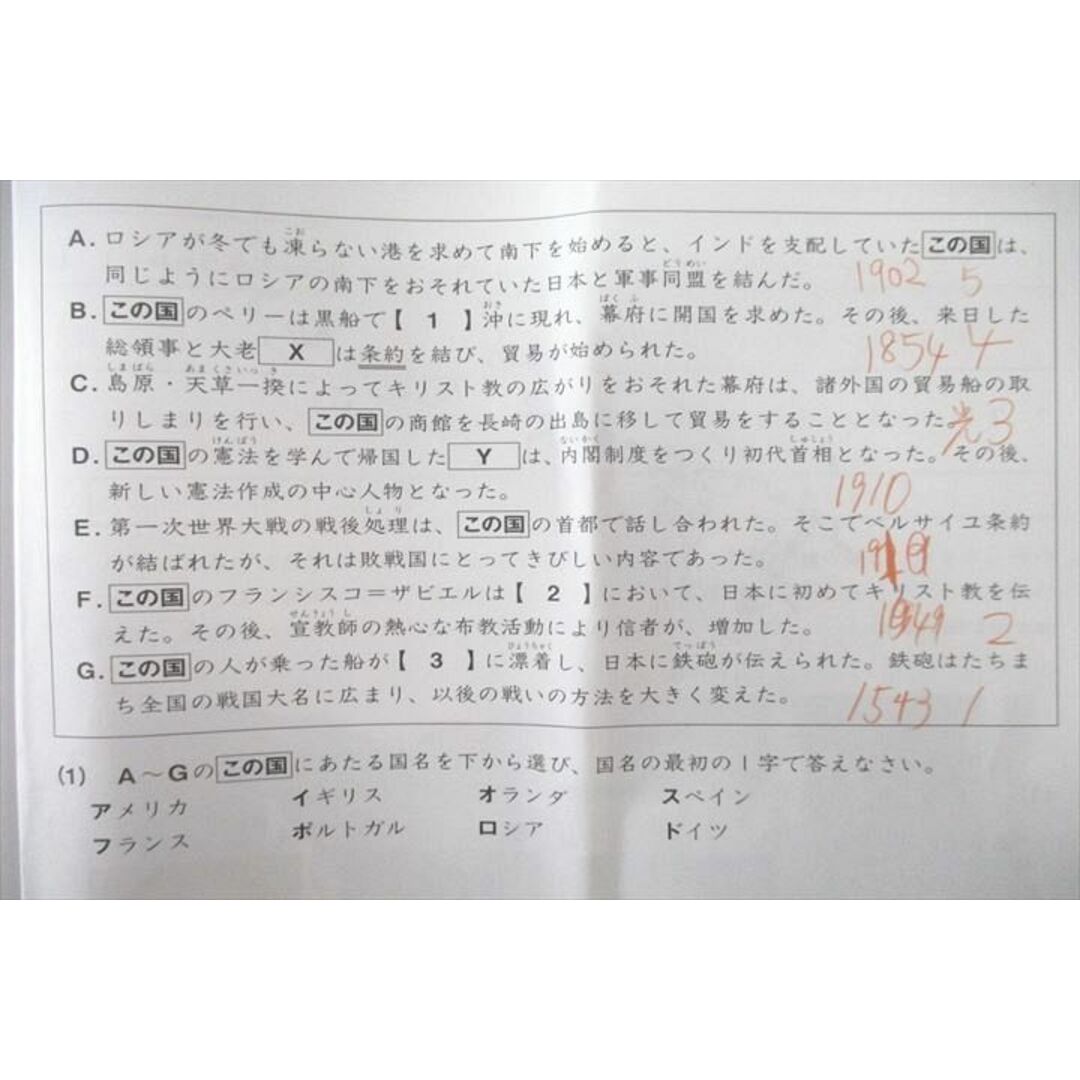 A. ロシアが冬でも凍らない港を求めて南下を始めると、インドを支配していたこの国は、
同じようにロシアの南下をおそれていた日本と軍事同盟を結んだ。 1902 5
B. この国のペリーは黒船で【 1 】沖に現れ、幕府に開国を求めた。その後、来日した
総領事と大老 X は条約を結び、貿易が始められた。 1854 4
C. 島原・天草一揆によってキリスト教の広がりをおそれた幕府は、諸外国の貿易船の取
りしまりを行い、この国の商館を長崎の出島に移して貿易をすることとなった。 3
D. この国の憲法を学んで帰国した Y は、内閣制度をつくり初代首相となった。その後、
新しい憲法作成の中心人物となった。 1910
E. 第一次世界大戦の戦後処理は、この国の首都で話し合われた。そこでベルサイユ条約
が結ばれたが、それは敗戦国にとってきびしい内容であった。
F. この国のフランシスコ＝ザビエルは【 2 】において、日本に初めてキリスト教を伝
えた。その後、宣教師の熱心な布教活動により信者が、増加した。 1549 2
G. この国の人が乗った船が【 3 】に漂着し、日本に鉄砲が伝えられた。鉄砲はたちま
ち全国の戦国大名に広まり、以後の戦いの方法を大きく変えた。 1543 1
(1) A～Gのこの国にあたる国名を下から選び、国名の最初の1字で答えなさい。
アメリカ イギリス オランダ スペイン
フランス ポルトガル ロシア ドイツ